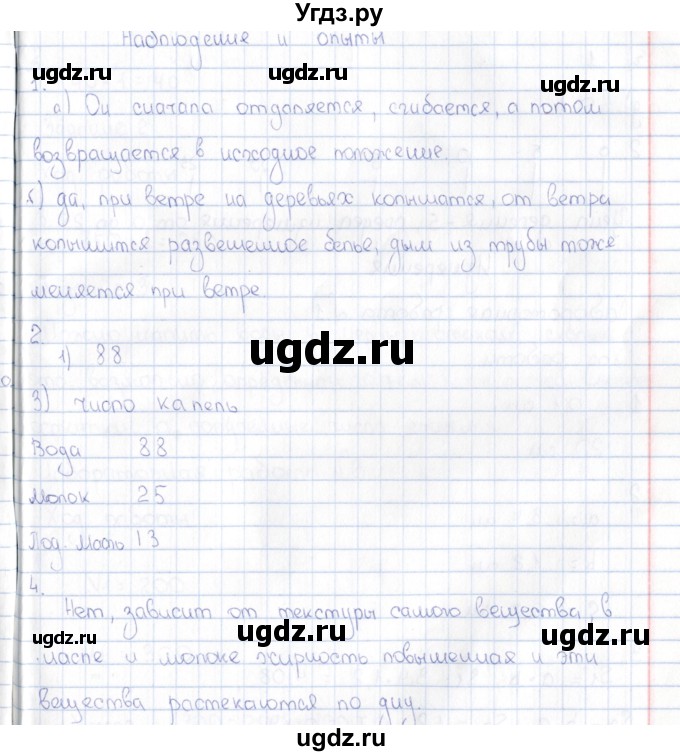 Угдз.ру
Наблюдение и опыты
ugdz.ru ugdz.ru
1.
а) Он сначала отдаляется, сгибается, а потом
ugdz.ru
возвращается в исходное положение.
б) да, при ветре на деревьях колышатся, от ветра
ugdz.ru ugdz.ru
колышится развешенное белье, дым из трубы тоже
меняется при ветре.
2.
1) 88
ugdz.ru
3) число капель
ugdz.ru ugdz.ru
Вода 88
Молок 25
ugdz.ru
Под. Масло 13
4.
Нет, зависит от текстуры самого вещества, в
ugdz.ru ugdz.ru
масле и молоке жирность повышенная и эти
вещества растекаются по дну.
ugdz.ru